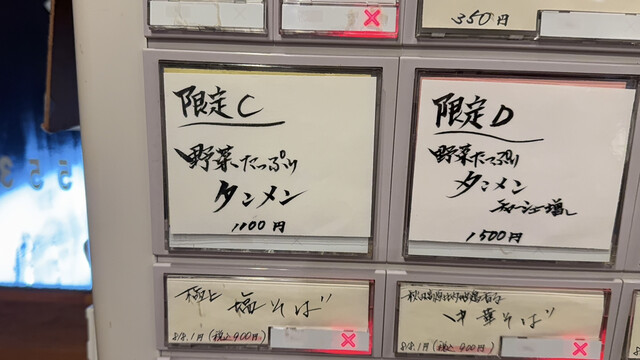 350円
限定C
野菜たっぷり
タンメン
1100円
限定D
野菜たっぷり
タンメン
チャーシュー増し
1500円
極上
塩そば
818.1円(税込900円)
中華そば
818.1円(税込900円)